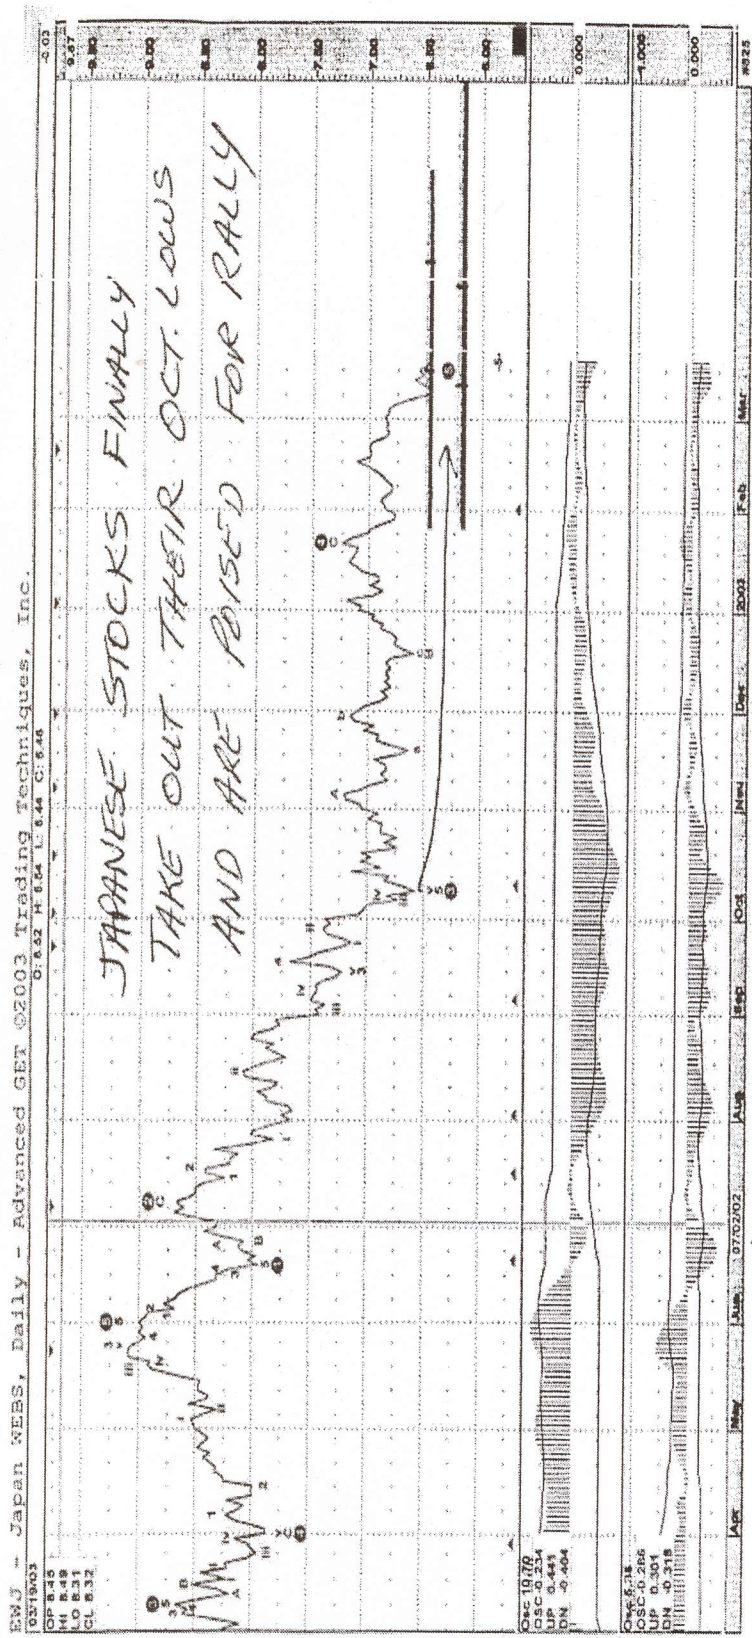 EWJ - Japan WEBS, Daily - Advanced GET ©2003 Trading Techniques, Inc.
03/19/03
O: 6.52 H: 6.54 L: 6.44 C: 6.46
-0.03
OP 8.45
HI 8.49
LO 8.31
CL 8.32
JAPANESE STOCKS FINALLY
TAKE OUT THEIR OCT. LOWS
AND ARE POISED FOR RALLY
9.67
9.50
9.00
8.50
8.00
7.50
7.00
6.50
6.00
Osc 10,70
OSC -0.234
UP 0.441
DN -0.404
0.000
OSC -0.266
UP 0.301
DN -0.318
1.000
0.000
Apr May Jun 07/02/02 Aug Sep Oct Nov Dec 2003 Feb Mar
#325